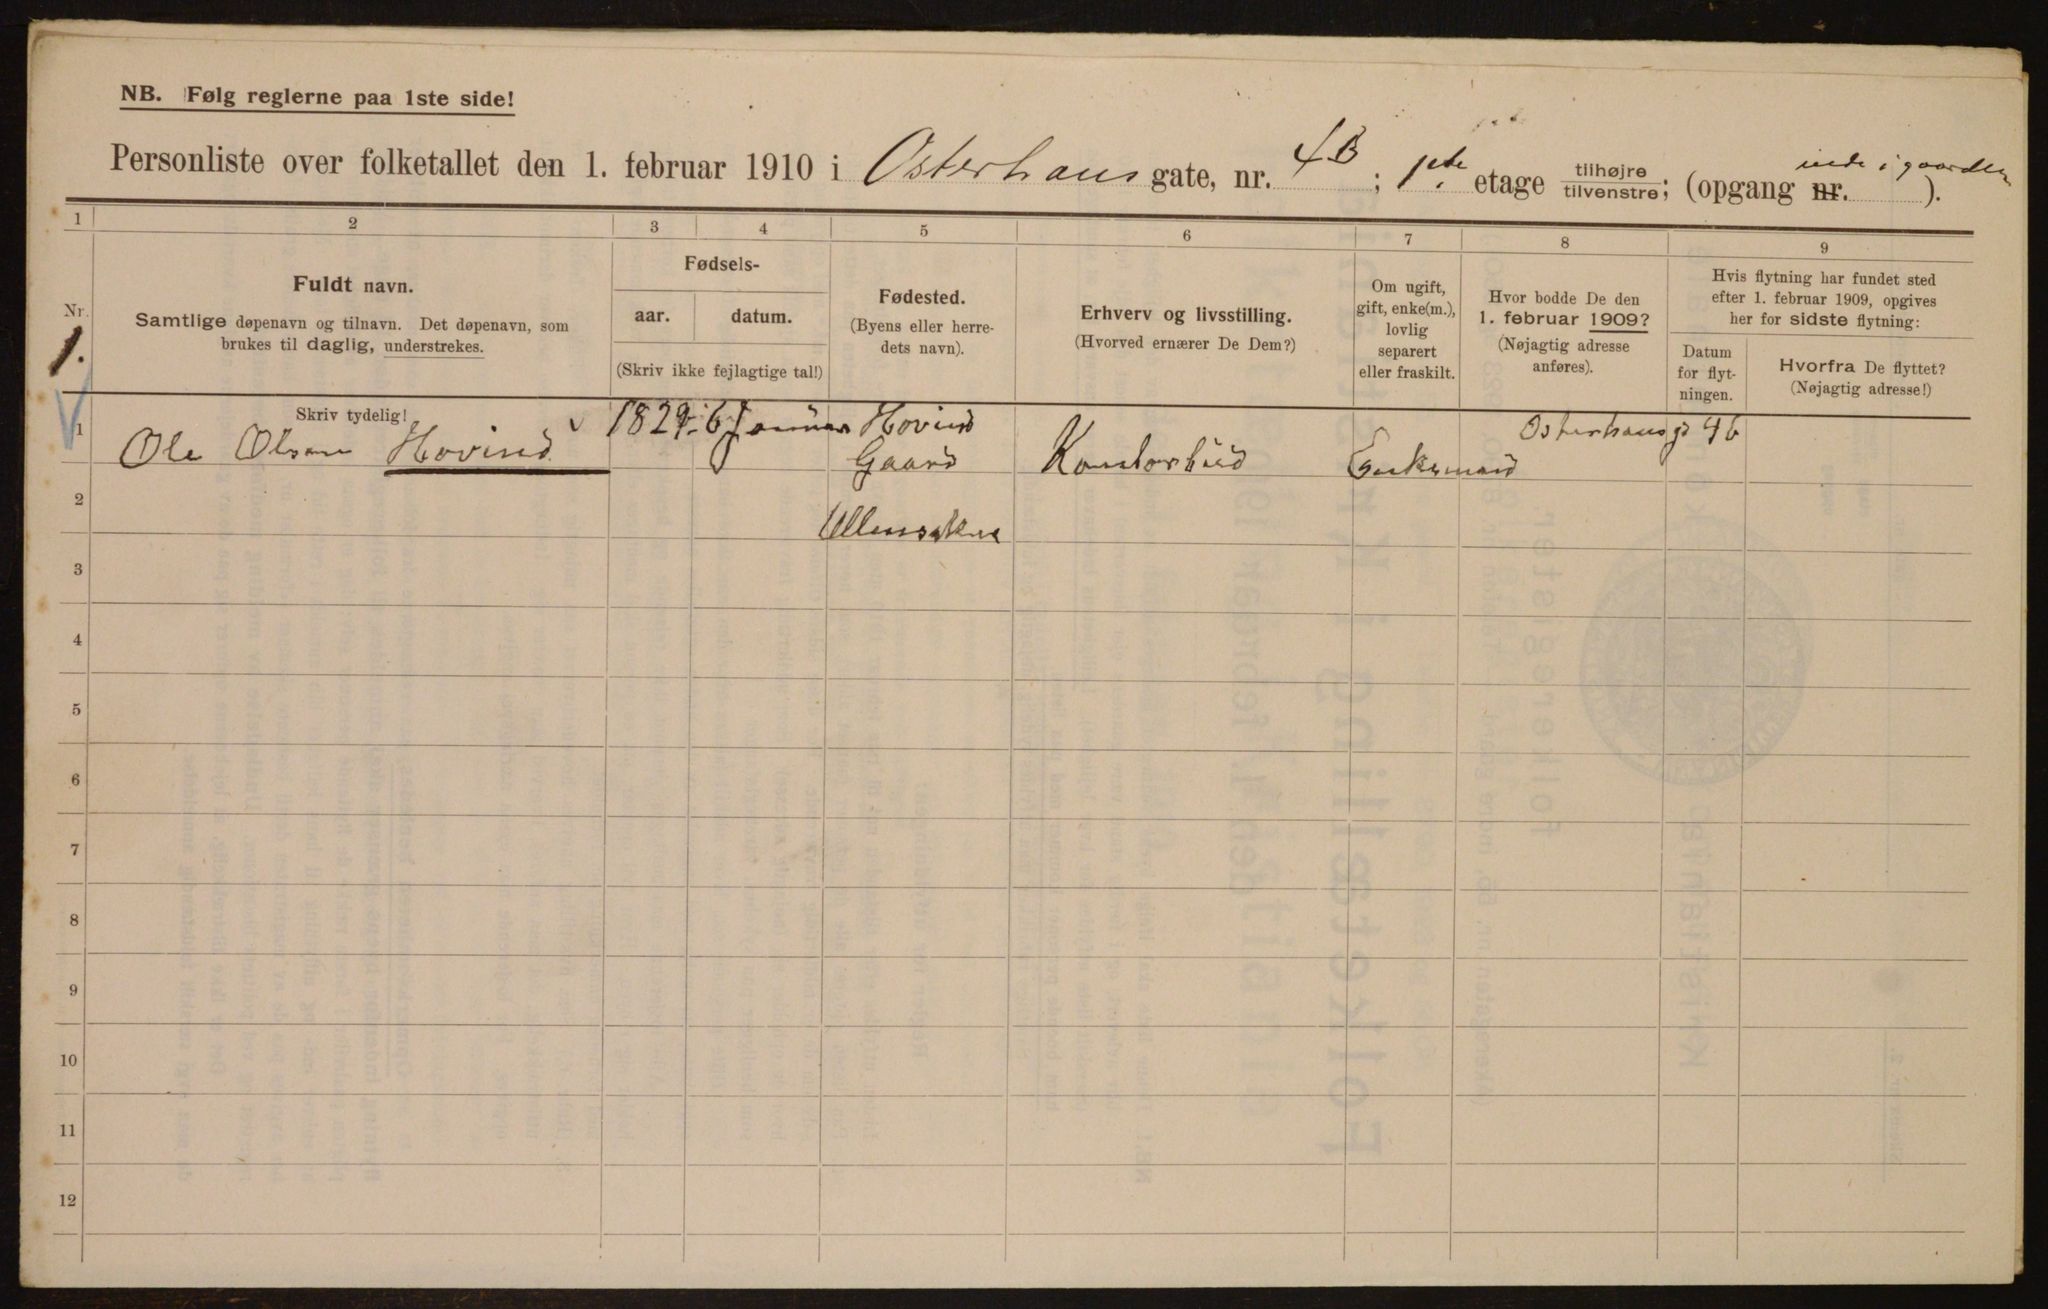 NB. Følg reglerne paa 1ste side!
Personliste over folketallet den 1. februar 1910 i Osterhaus gate, nr. 4B; 1ste etage tilhøjre/tilvenstre; (opgang nr. inde i gaarden).
1 2 3 4 5 6 7 8 9
Nr.
1.
Fuldt navn.
Samtlige døpenavn og tilnavn. Det døpenavn, som
brukes til daglig, understrekes.
Skriv tydelig!
Fødsels-
aar. datum.
(Skriv ikke fejlagtige tal!)
Fødested.
(Byens eller herre-
dets navn).
Erhverv og livsstilling.
(Hvorved ernærer De Dem?)
Om ugift,
gift, enke(m.),
lovlig
separert
eller fraskilt.
Hvor bodde De den
1. februar 1909?
(Nøjagtig adresse
anføres).
Hvis flytning har fundet sted
efter 1. februar 1909, opgives
her for sidste flytning:
Datum
for flyt-
ningen.
Hvorfra De flyttet?
(Nøjagtig adresse!)
1 Ole Olsen Hovind 1829 6 Januar Hovind Osterhausgt 4b
Gaard Kontorbud Enkemand
2
Ullensaker
3
4
5
6
7
8
9
10
11
12